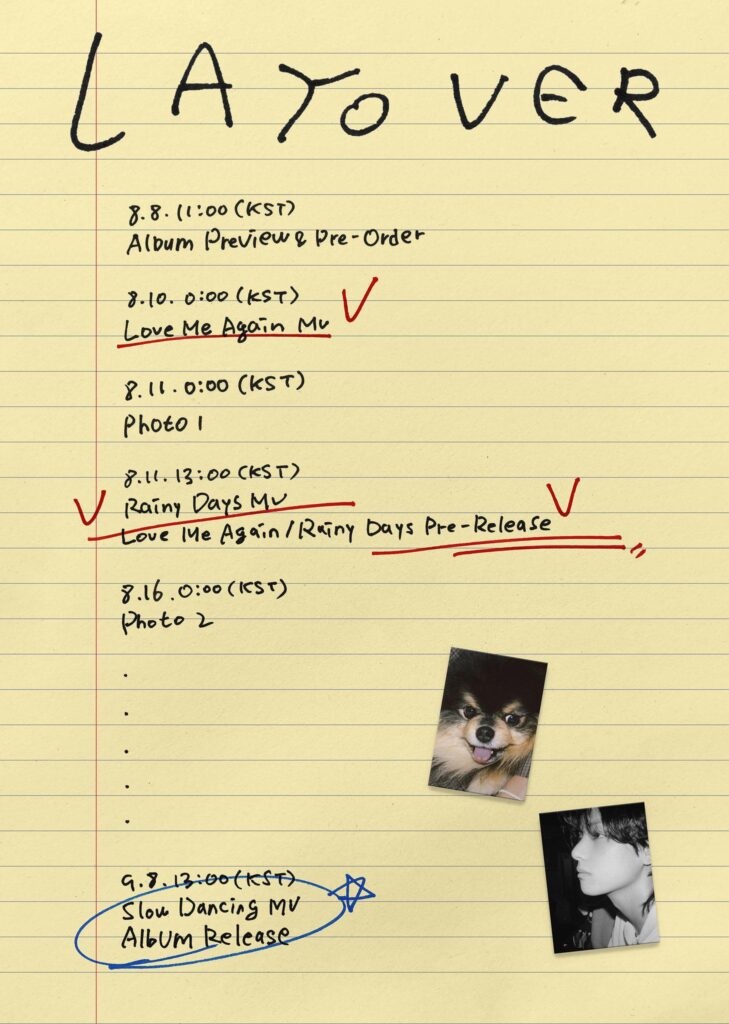 LAYOVER
8.8.11:00 (KST)
Album Preview & Pre-Order
8.10. 0:00 (KST)
Love Me Again MV
8.11. 0:00 (KST)
Photo 1
8.11. 13:00 (KST)
Rainy Days MV
Love Me Again / Rainy Days Pre-Release
8.16. 0:00 (KST)
Photo 2
.
.
.
.
.
9.8. 13:00 (KST)
Slow Dancing MV
Album Release